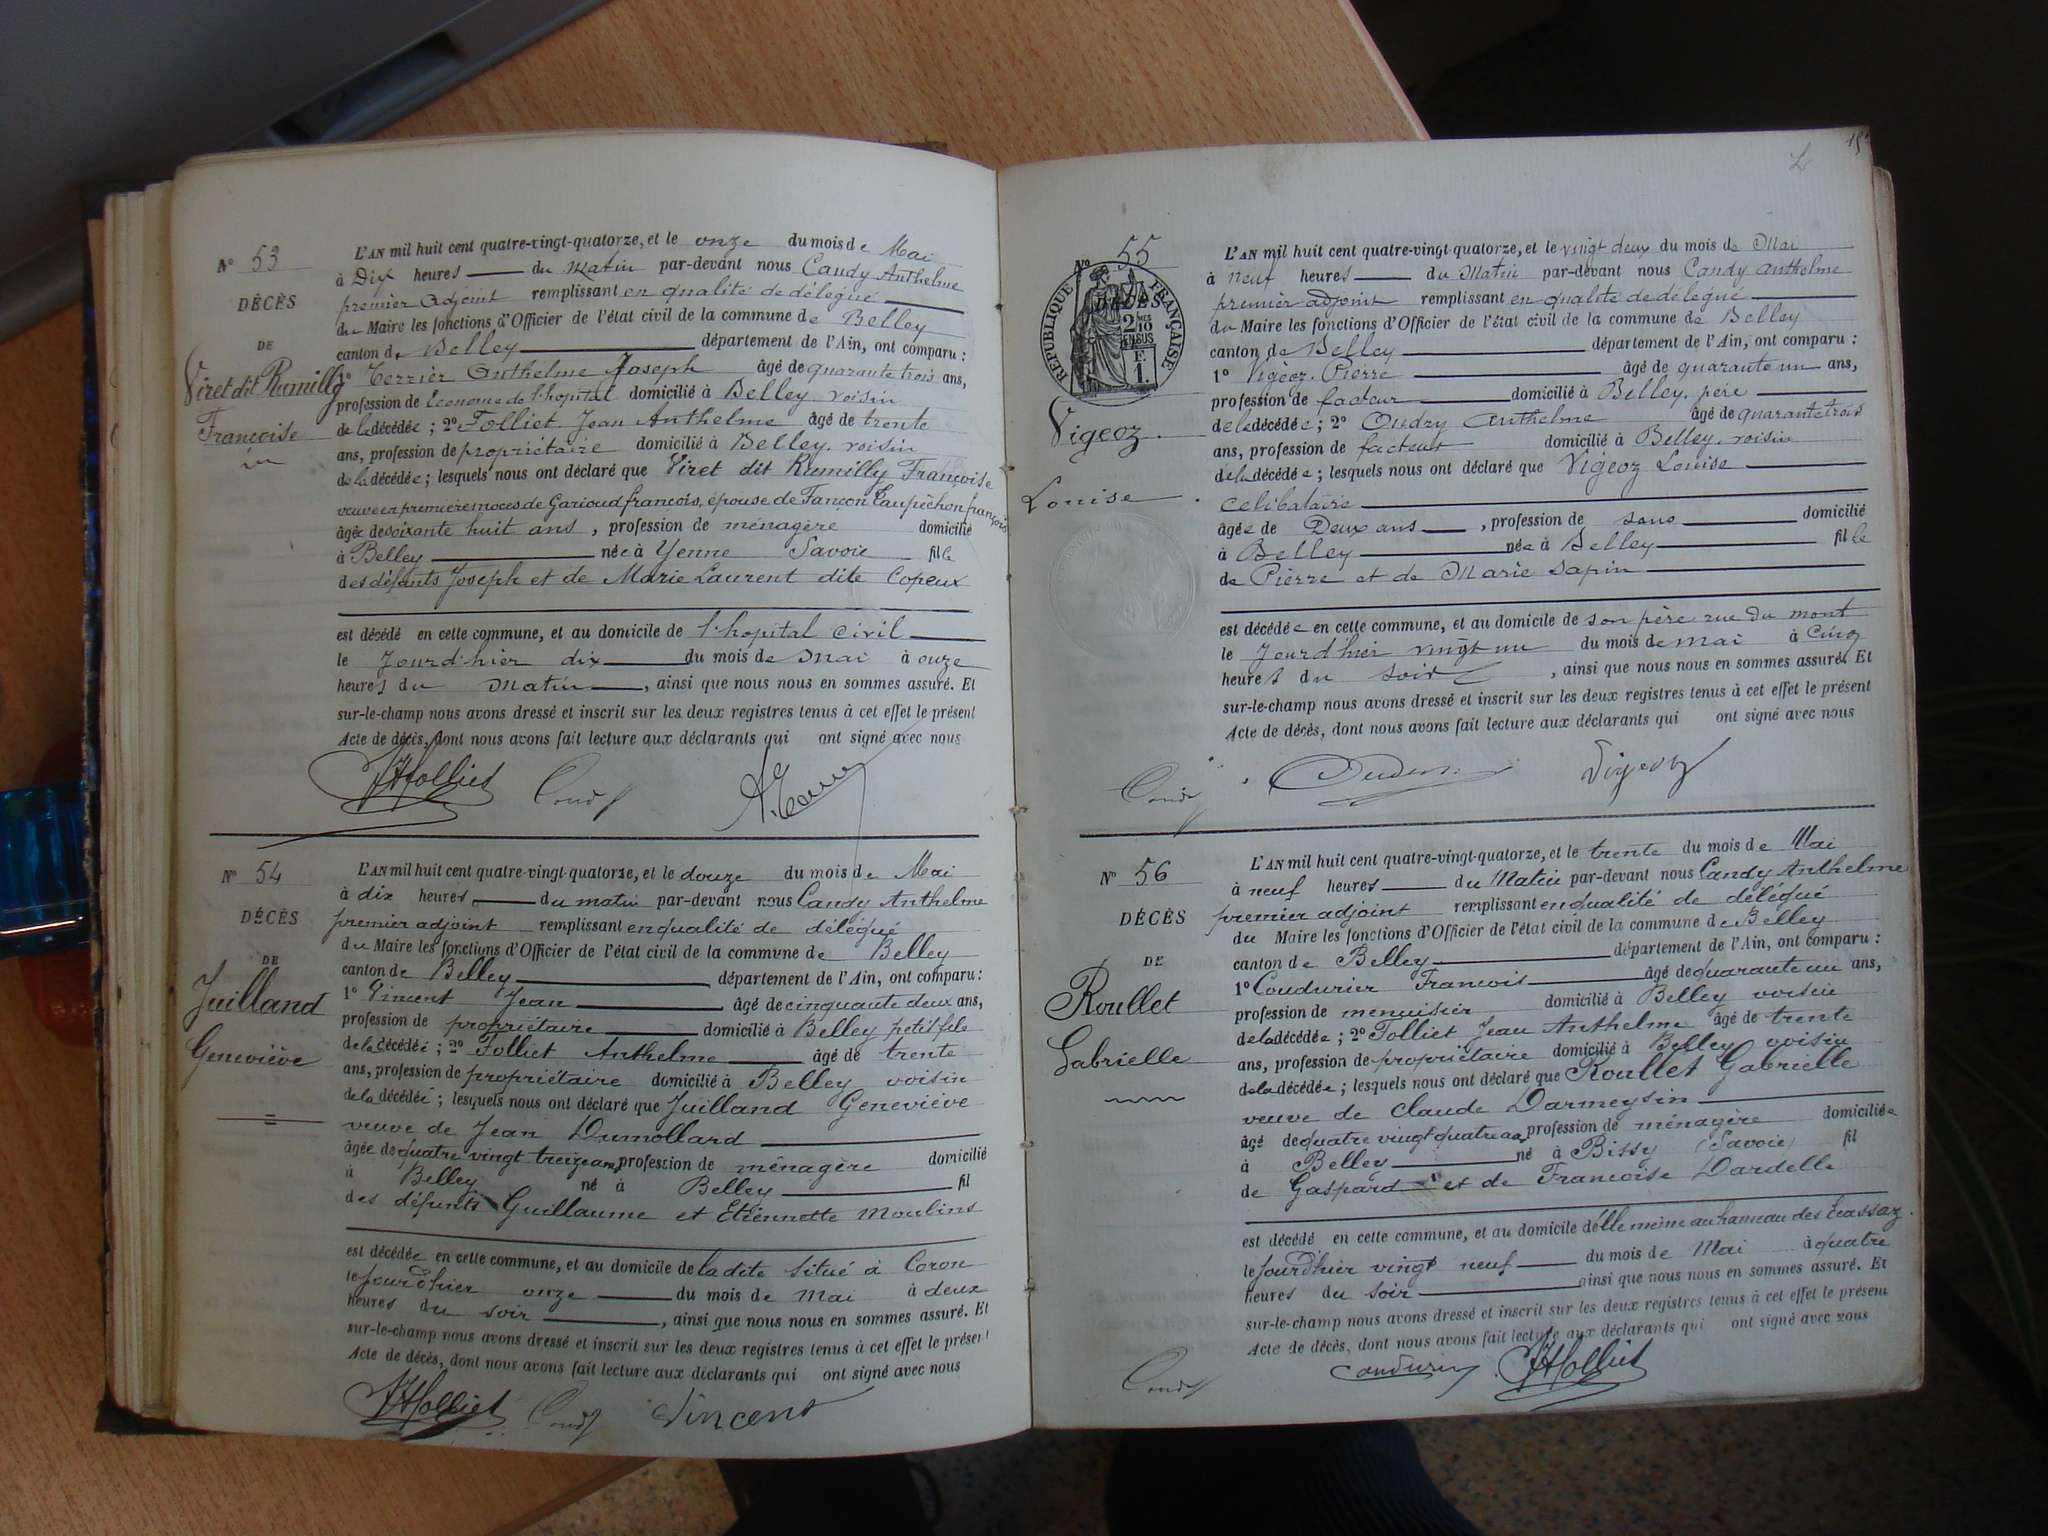 Nº 53
DÉCÈS
DE
Viret dit Rumilly
Françoise
L'AN mil huit cent quatre-vingt-quatorze, et le onze du mois de Mai
à Dix heures du Matin par-devant nous Candy Anthelme
premier Adjoint remplissant en qualité de délégué
du Maire les fonctions d'Officier de l'état civil de la commune de Belley
canton de Belley département de l'Ain, ont comparu :
1º Terrier Anthelme Joseph âgé de quarante trois ans,
profession de Econome de l'hopital domicilié à Belley, voisin
de la décédée ; 2º Folliet Jean Anthelme âgé de trente
ans, profession de propriétaire domicilié à Belley, voisin
de la décédée ; lesquels nous ont déclaré que Viret dit Rumilly Françoise
veuve en premières noces de Garioud francois, épouse de Tançon Taupêchon françois
âgée de soixante huit ans, profession de ménagère domicilié
à Belley née à Yenne Savoie fille
des défunts Joseph et de Marie Laurent dite Copeux
est décédé en cette commune, et au domicile de l'hopital civil
le Jourd'hier dix du mois de Mai à onze
heures du Matin, ainsi que nous nous en sommes assuré. Et
sur-le-champ nous avons dressé et inscrit sur les deux registres tenus à cet effet le présent
Acte de décès, dont nous avons fait lecture aux déclarants qui ont signé avec nous
JAFolliet Candy A. Terrier
Nº 54
DÉCÈS
DE
Juilland
Geneviève
L'AN mil huit cent quatre-vingt-quatorze, et le douze du mois de Mai
à dix heures du matin par-devant nous Candy Anthelme
premier adjoint remplissant en qualité de délégué
du Maire les fonctions d'Officier de l'état civil de la commune de Belley
canton de Belley département de l'Ain, ont comparu :
1º Vincent Jean âgé de cinquante deux ans,
profession de propriétaire domicilié à Belley petit fils
de la décédée ; 2º Folliet Anthelme âgé de trente
ans, profession de propriétaire domicilié à Belley voisin
de la décédée ; lesquels nous ont déclaré que Juilland Geneviève
veuve de Jean Dumollard
âgée de quatre vingt treize ans, profession de ménagère domicilié
à Belley né à Belley fil
des défunts Guillaume et Etiennette Moulins
est décédée en cette commune, et au domicile de ladite situé à Coron
le Jourd'hier onze du mois de Mai à deux
heures du soir, ainsi que nous nous en sommes assuré. Et
sur-le-champ nous avons dressé et inscrit sur les deux registres tenus à cet effet le présent
Acte de décès, dont nous avons fait lecture aux déclarants qui ont signé avec nous
JAFolliet Candy Vincent
Nº 55
DÉCÈS
RÉPUBLIQUE FRANÇAISE
2 MES
10
EN SUS
F.
1.
Vigeoz
Louise
L'AN mil huit cent quatre-vingt-quatorze, et le vingt deux du mois de Mai
à Neuf heures du Matin par-devant nous Candy Anthelme
premier adjoint remplissant en qualité de délégué
du Maire les fonctions d'Officier de l'état civil de la commune de Belley
canton de Belley département de l'Ain, ont comparu :
1º Vigeoz Pierre âgé de quarante un ans,
profession de facteur domicilié à Belley, père
de la décédée ; 2º Oudry Anthelme âgé de quarante trois
ans, profession de facteur domicilié à Belley, voisin
de la décédée ; lesquels nous ont déclaré que Vigeoz Louise
celibataire
âgée de Deux ans, profession de sans domicilié
à Belley née à Belley fille
de Pierre et de Marie Sapin
est décédée en cette commune, et au domicile de son père rue du mont
le Jourd'hier vingt un du mois de mai à cinq
heures du soir, ainsi que nous nous en sommes assuré. Et
sur-le-champ nous avons dressé et inscrit sur les deux registres tenus à cet effet le présent
Acte de décès, dont nous avons fait lecture aux déclarants qui ont signé avec nous
Candy Vigeoz
Nº 56
DÉCÈS
DE
Roullet
Gabrielle
L'AN mil huit cent quatre-vingt-quatorze, et le trente du mois de Mai
à neuf heures du Matin par-devant nous Candy Anthelme
premier adjoint remplissant en qualité de délégué
du Maire les fonctions d'Officier de l'état civil de la commune de Belley
canton de Belley département de l'Ain, ont comparu :
1º Coudurier Francois âgé de quarante un ans,
profession de menuisier domicilié à Belley voisin
de la décédée ; 2º Folliet Jean Anthelme âgé de trente
ans, profession de propriétaire domicilié à Belley voisin
de la décédée ; lesquels nous ont déclaré que Roullet Gabrielle
veuve de Claude Darmeysin
âgé de quatre vingt quatre ans, profession de ménagère domiciliée
à Belley né à Bissy (Savoie) fil
de Gaspard et de Francoise Dardelle
est décédé en cette commune, et au domicile d'elle même au hameau des Ecassaz
le Jourd'hier vingt neuf du mois de Mai à quatre
heures du soir ainsi que nous nous en sommes assuré. Et
sur-le-champ nous avons dressé et inscrit sur les deux registres tenus à cet effet le présent
Acte de décès, dont nous avons fait lecture aux déclarants qui ont signé avec nous
Candy Coudurier JAFolliet